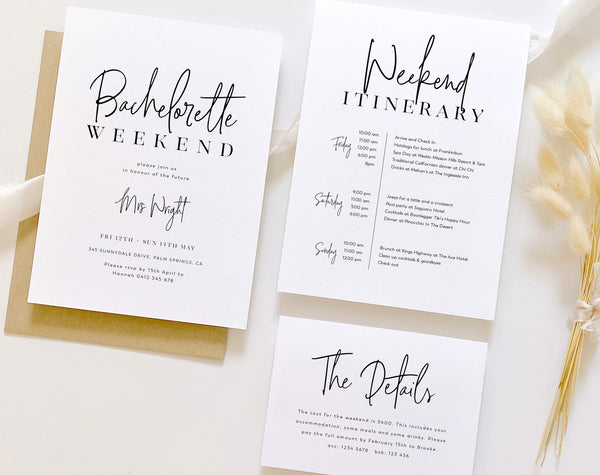 Bachelorette
WEEKEND
please join us
in honour of the future
Mrs Wright
FRI 12TH - SUN 14TH MAY
345 SUNNYDALE DRIVE, PALM SPRINGS, CA
Please rsvp by 15th April to
Hannah 0412 345 678
Weekend
ITINERARY
Friday
10:00 am
11:00 am
12:00 pm
6:00 pm
8pm
Arrive and Check In
Hotdogs for lunch at Frankinbun
Spa Day at Westin Mission Hills Resort & Spa
Traditional Californian dinner at Chi Chi
Drinks at Melvyn's at The Ingleside Inn
Saturday
9:00 am
11:00 am
5:00 pm
6:00 pm
Joeys for a latte and a croissant
Pool party at Saguaro Hotel
Cocktails at Bootlegger Tiki's Happy Hour
Dinner at Pinocchio In The Desert
Sunday
10:00 am
11:00 am
12:00 pm
Brunch at Kings Highway at The Ace Hotel
Clean up cocktails & goodbyes
Check out
The Details
The cost for the weekend is $400. This includes your
accommodation, some meals and some drinks. Please
pay the full amount by February 15th to Brooke.
acc: 1234 5678 bsb: 123 456